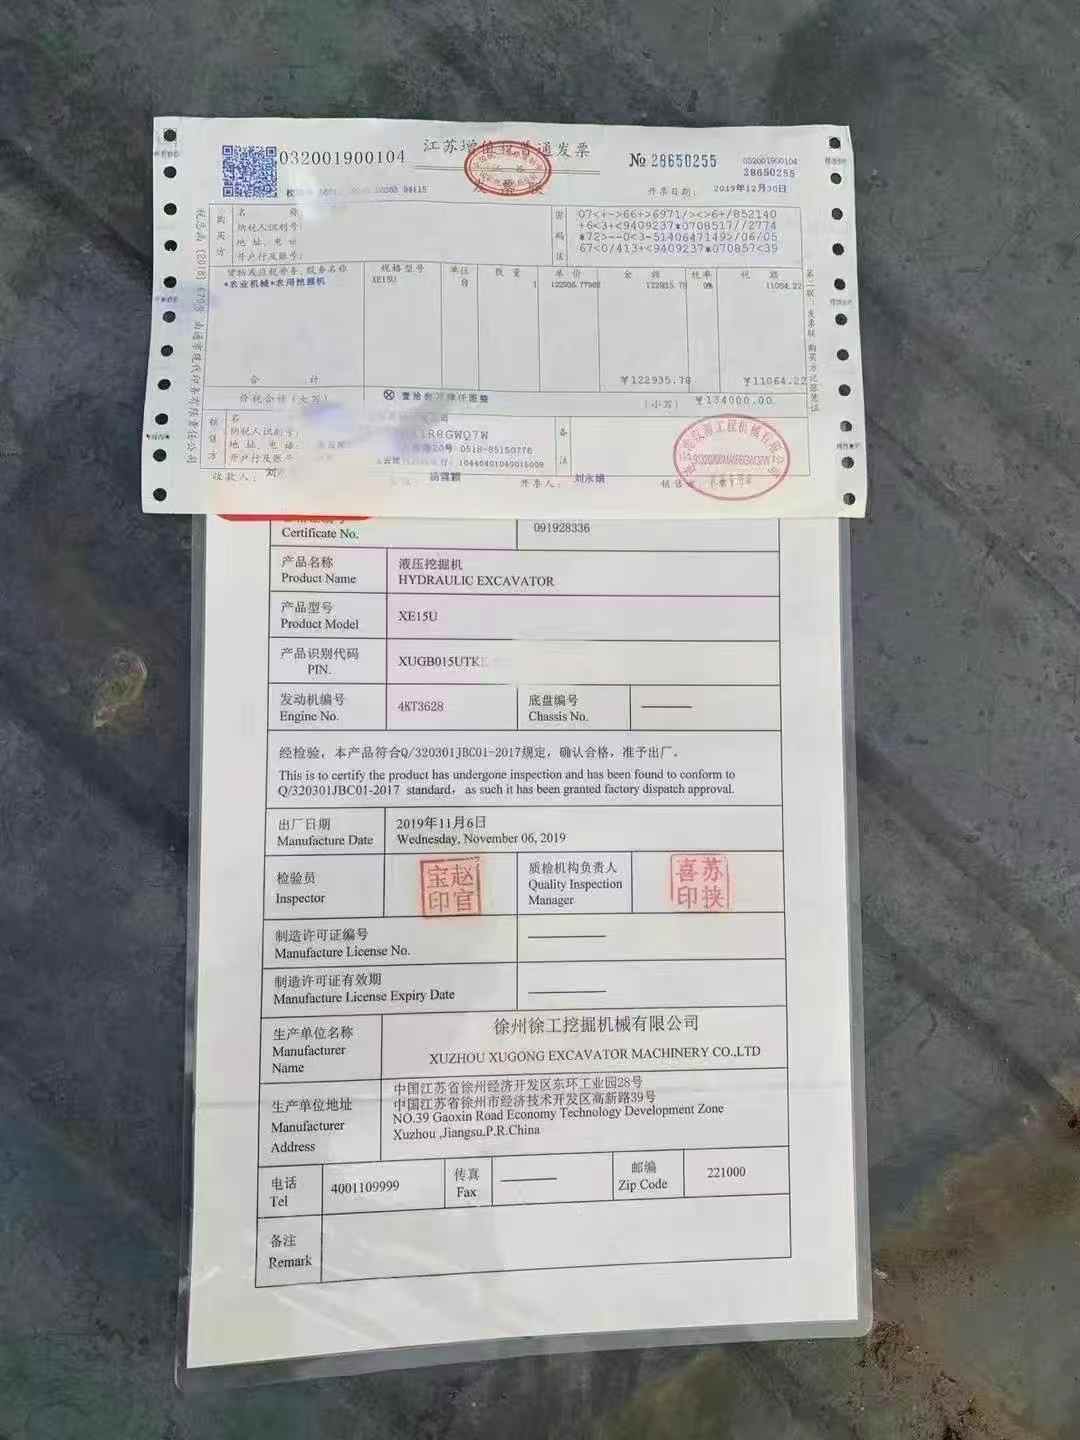 032001900104
江苏增值税普通发票
№ 28650255
032001900104
28650255
开票日期：
2019年12月30日
04115
税总函〔2018〕
购买方
名 称
纳税人识别号：
地 址、电 话
开户行及账号：
密码区
07<+->66+>6971/><>6+/852140
+6<3+<9409237*0708517//2774
*72>--0<3-5140647149>/06/05
67<0/413+<9409237*070857<39
货物或应税劳务、服务名称
规格型号
单位
数 量
单 价
金 额
税率
税 额
*农业机械*农用挖掘机
XE15U
台
1
122935.78
9%
11064.22
合 计
￥122935.78
￥11064.22
价税合计（大写）
⊗ 壹拾叁万肆仟圆整
（小写）
￥134000.00
第二联：发票联 购买方记账凭证
销售方
名
纳税人识别号：
地 址、电 话
开户行及账号
20号 0518-85150776
10440401040015009
备注
收款人：
刘
开票人：
刘永娟
销售
Certificate No.
091928336
产品名称
Product Name
液压挖掘机
HYDRAULIC EXCAVATOR
产品型号
Product Model
XE15U
产品识别代码
PIN.
XUGB015UTK
发动机编号
Engine No.
4KT3628
底盘编号
Chassis No.
经检验，本产品符合Q/320301JBC01-2017规定，确认合格，准予出厂。
This is to certify the product has undergone inspection and has been found to conform to
Q/320301JBC01-2017 standard, as such it has been granted factory dispatch approval.
出厂日期
Manufacture Date
2019年11月6日
Wednesday, November 06, 2019
检验员
Inspector
赵官宝印
质检机构负责人
Quality Inspection
Manager
苏挟喜印
制造许可证编号
Manufacture License No.
制造许可证有效期
Manufacture License Expiry Date
生产单位名称
Manufacturer
Name
徐州徐工挖掘机械有限公司
XUZHOU XUGONG EXCAVATOR MACHINERY CO.,LTD
生产单位地址
Manufacturer
Address
中国江苏省徐州经济开发区东环工业园28号
中国江苏省徐州市经济技术开发区高新路39号
NO.39 Gaoxin Road Economy Technology Development Zone
Xuzhou ,Jiangsu,P.R.China
电话
Tel
4001109999
传真
Fax
邮编
Zip Code
221000
备注
Remark